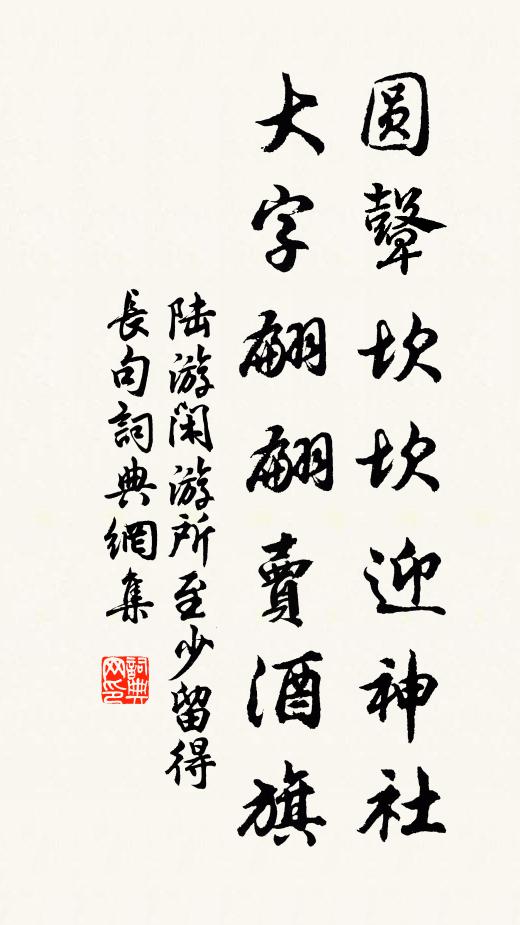 圓鼙坎坎迎神社
大字翩翩賣酒旗
陸游閑游所至少留得
長句詞典網集
詞典网印